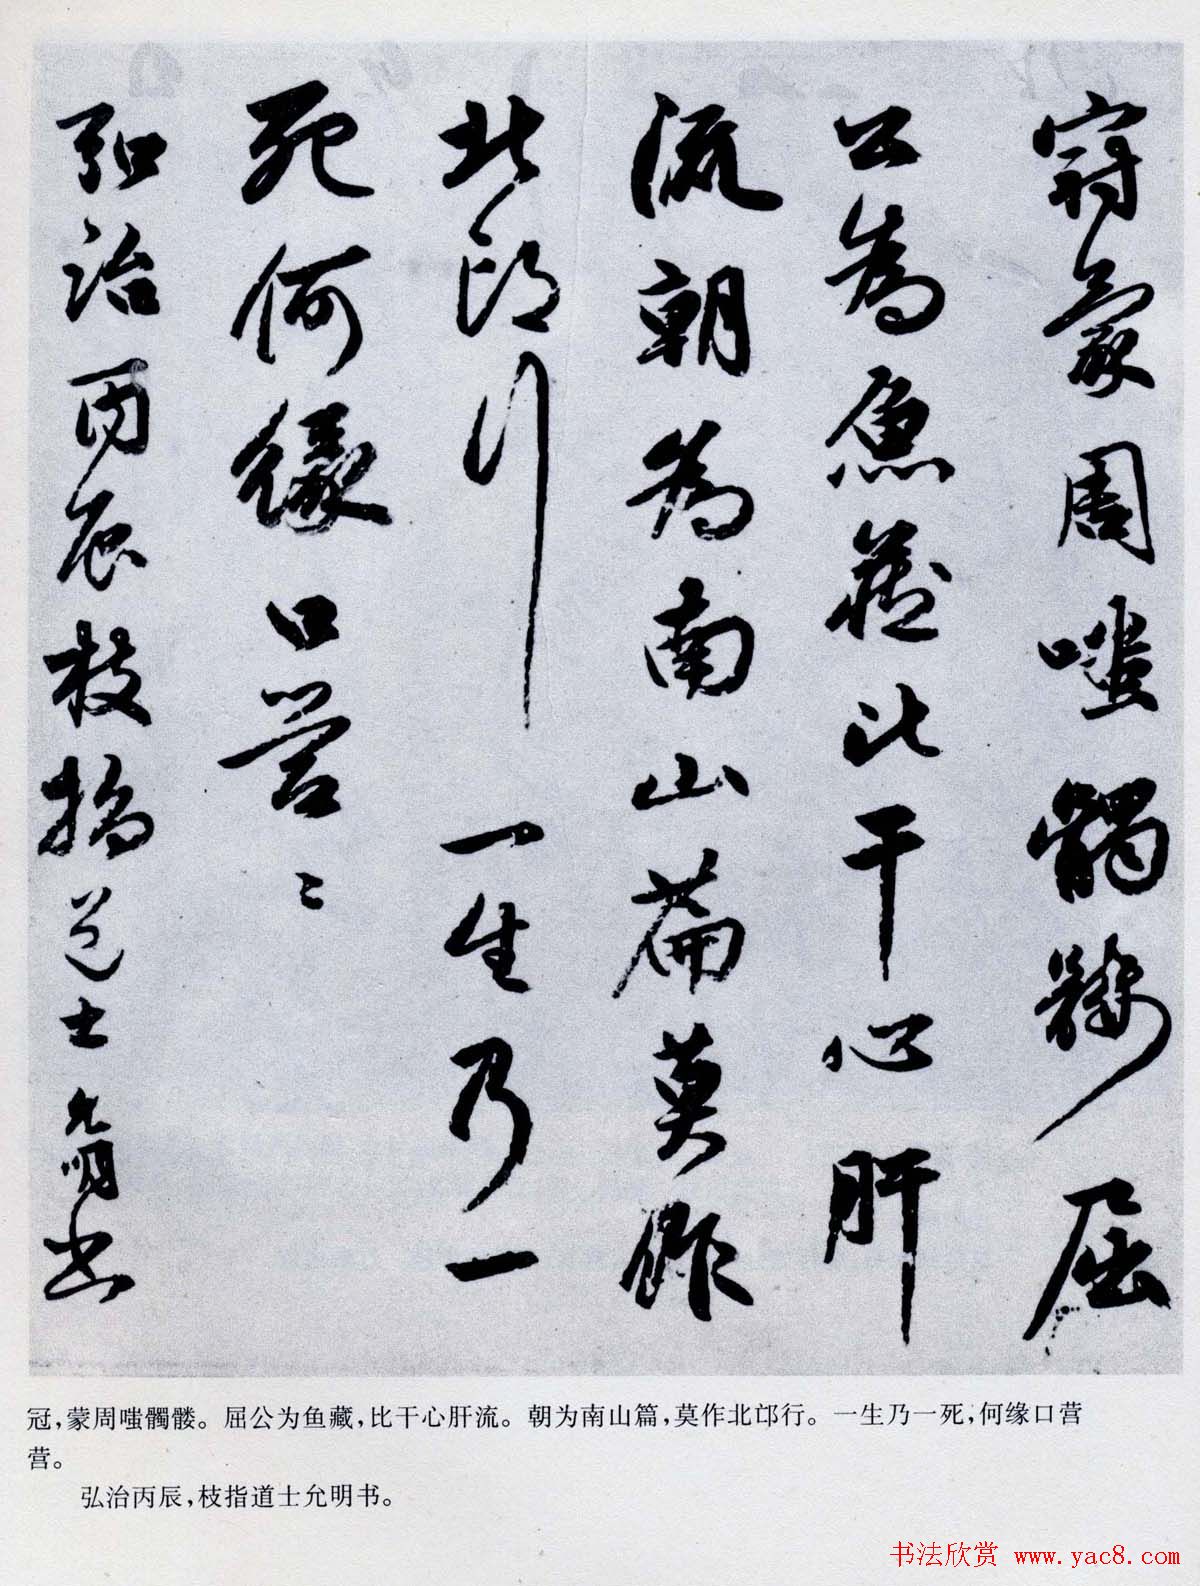 冠蒙周嗤髑髅屈
公为鱼藏比干心肝
流朝为南山篇莫作
北邙行一生乃一
死何缘口营〻
弘治丙辰枝指道士允明书
冠，蒙周嗤髑髅。屈公为鱼藏，比干心肝流。朝为南山篇，莫作北邙行。一生乃一死，何缘口营
营。
弘治丙辰，枝指道士允明书。
书法欣赏 www.yac8.com